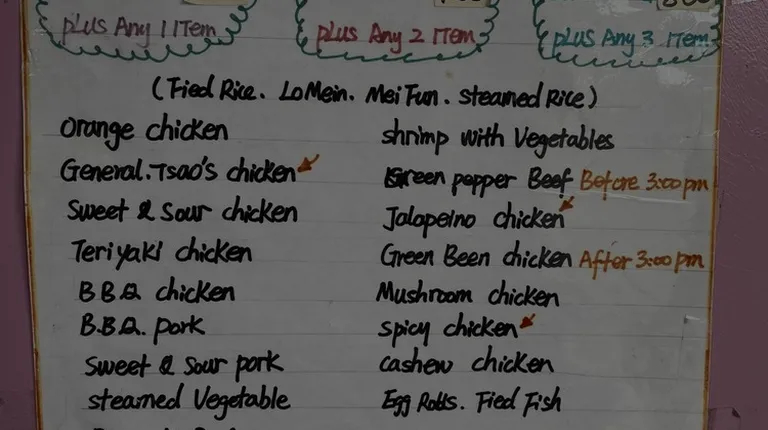 plus Any 1 Item
plus Any 2 Item
plus Any 3 Item
(Fied Rice. LoMein. Mei Fun. steamed Rice)
Orange chicken
General.Tsao's chicken
Sweet & Sour chicken
Teriyaki chicken
B B.Q chicken
B.B.Q. pork
Sweet & Sour pork
steamed Vegetable
shrimp with Vegetables
Green pepper Beef Before 3:00 pm
Jalapeino chicken
Green Been chicken After 3:00 pm
Mushroom chicken
spicy chicken
cashew chicken
Egg Rolls. Fied Fish